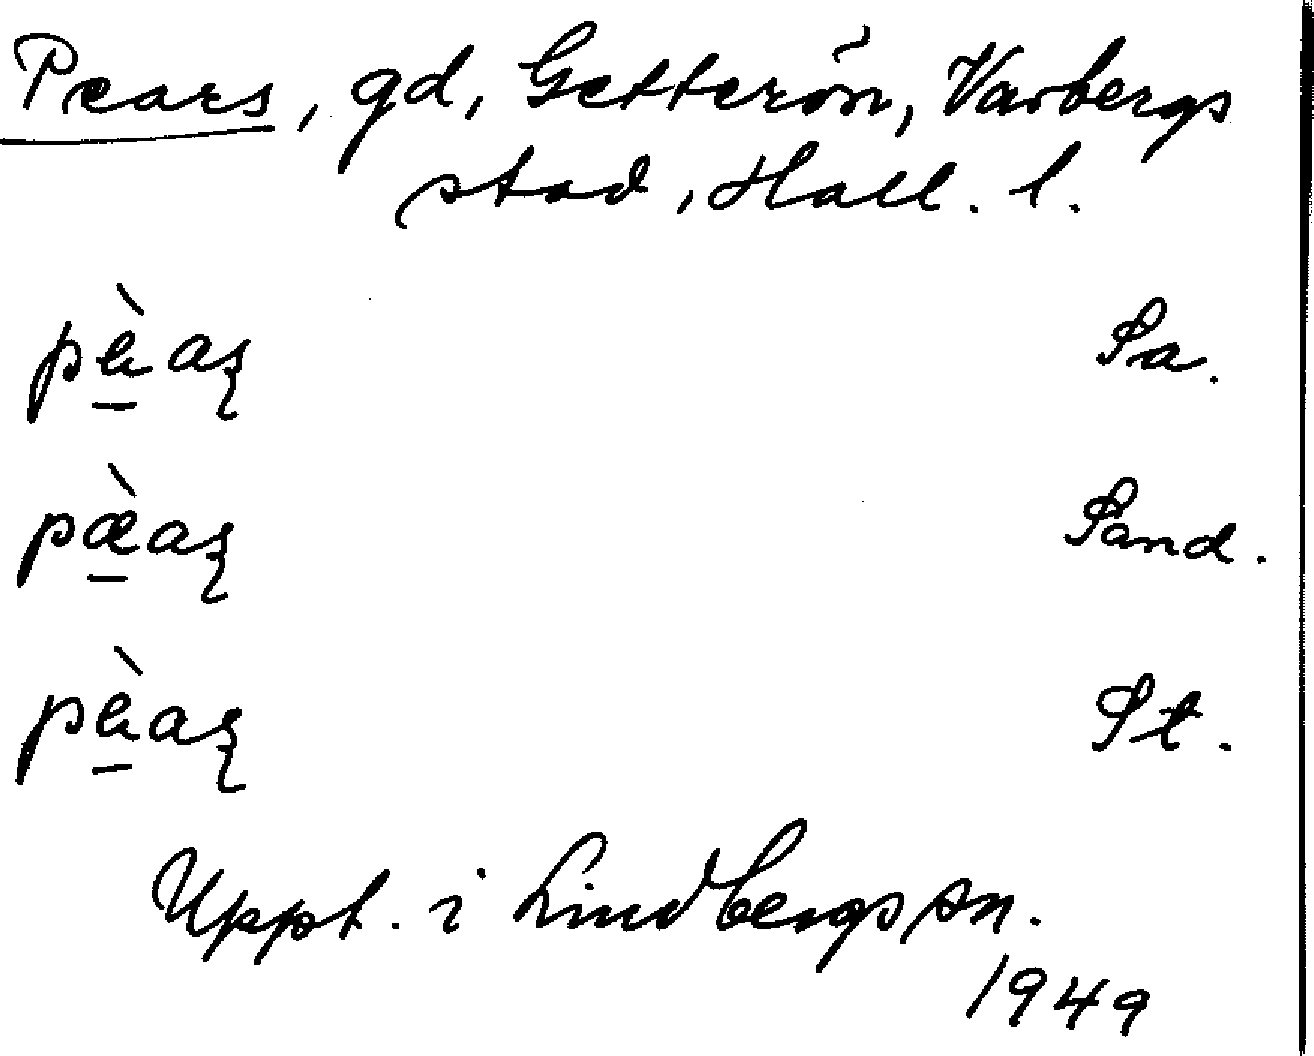 Pears, gd, Getterön, Varbergs
stad, Hall. l.
pæ̀aʂ Sa.
pæ̀aʂ Sand.
pæ̀aʂ St.
Uppt. i Lindbergs sn.
1949